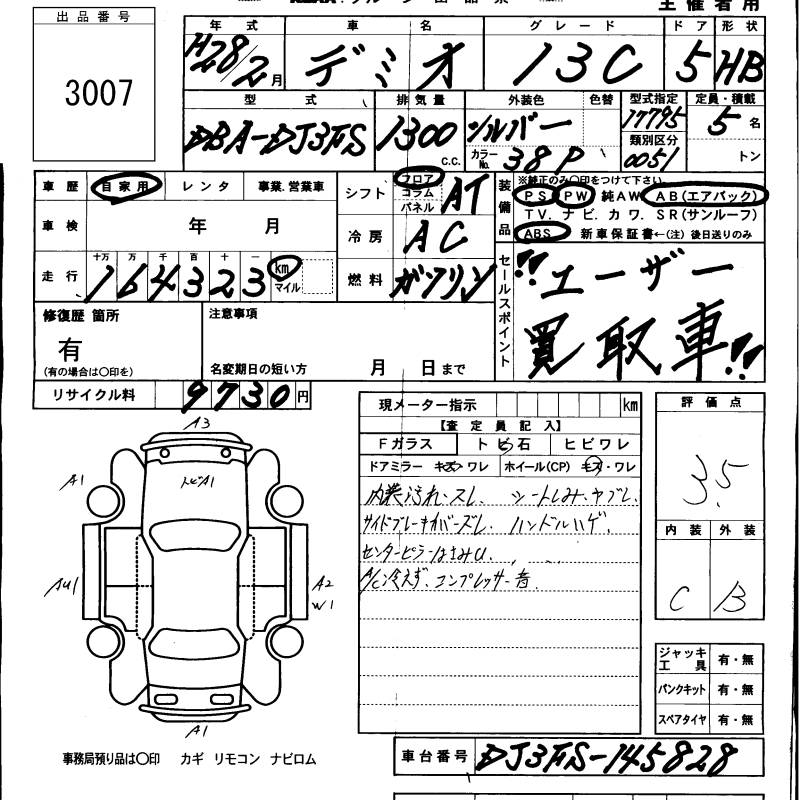 主催者用
出品番号
3007
年式 車名 グレード ドア 形状
H28/2月 デミオ 13C 5 HB
型式 排気量 外装色 色替 型式指定 定員・積載
DBA-DJ3FS 1300 c.c. シルバー カラーNo. 38P 17795 5名
類別区分 0051 トン
車歴 自家用 レンタ 事業.営業車
シフト フロア コラム パネル AT
装備品 ※純正のみ〇印をつけて下さい
PS PW 純AW AB(エアバック)
TV. ナビ. カワ. SR(サンルーフ)
ABS 新車保証書←(注) 後日送りのみ
車検 年 月
冷房 AC
走行 十万 万 千 百 十 一
164323 km マイル
燃料 ガソリン
セールスポイント
!!ユーザー
買取車!!
修復歴 箇所
有
(有の場合は〇印を)
注意事項
名変期日の短い方 月 日まで
リサイクル料 9730円
現メーター指示 km
【査定員記入】
Fガラス トビ石 ヒビワレ
ドアミラー キズ・ワレ ホイール(CP) キズ・ワレ
内装汚れ.スレ. シートしみ.ヤブレ.
サイドブレーキカバーズレ. ハンドルハゲ.
センターピラーはさみU.
A/C冷えず.コンプレッサー音.
評価点
3.5
内装 外装
C B
A3
トビA1
A1
AU1
A2
W1
A1
ジャッキ工具 有・無
パンクキット 有・無
スペアタイヤ 有・無
事務局預り品は〇印 カギ リモコン ナビロム
車台番号 DJ3FS-145828